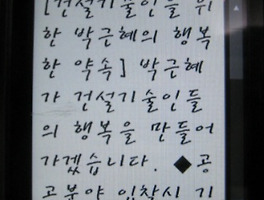 [건설기술인을 위
한 박근혜의 행복
한 약속] 박근혜
가 건설기술인들
의 행복을 만들어
가겠습니다. ◆공
공분야 입찰시 기